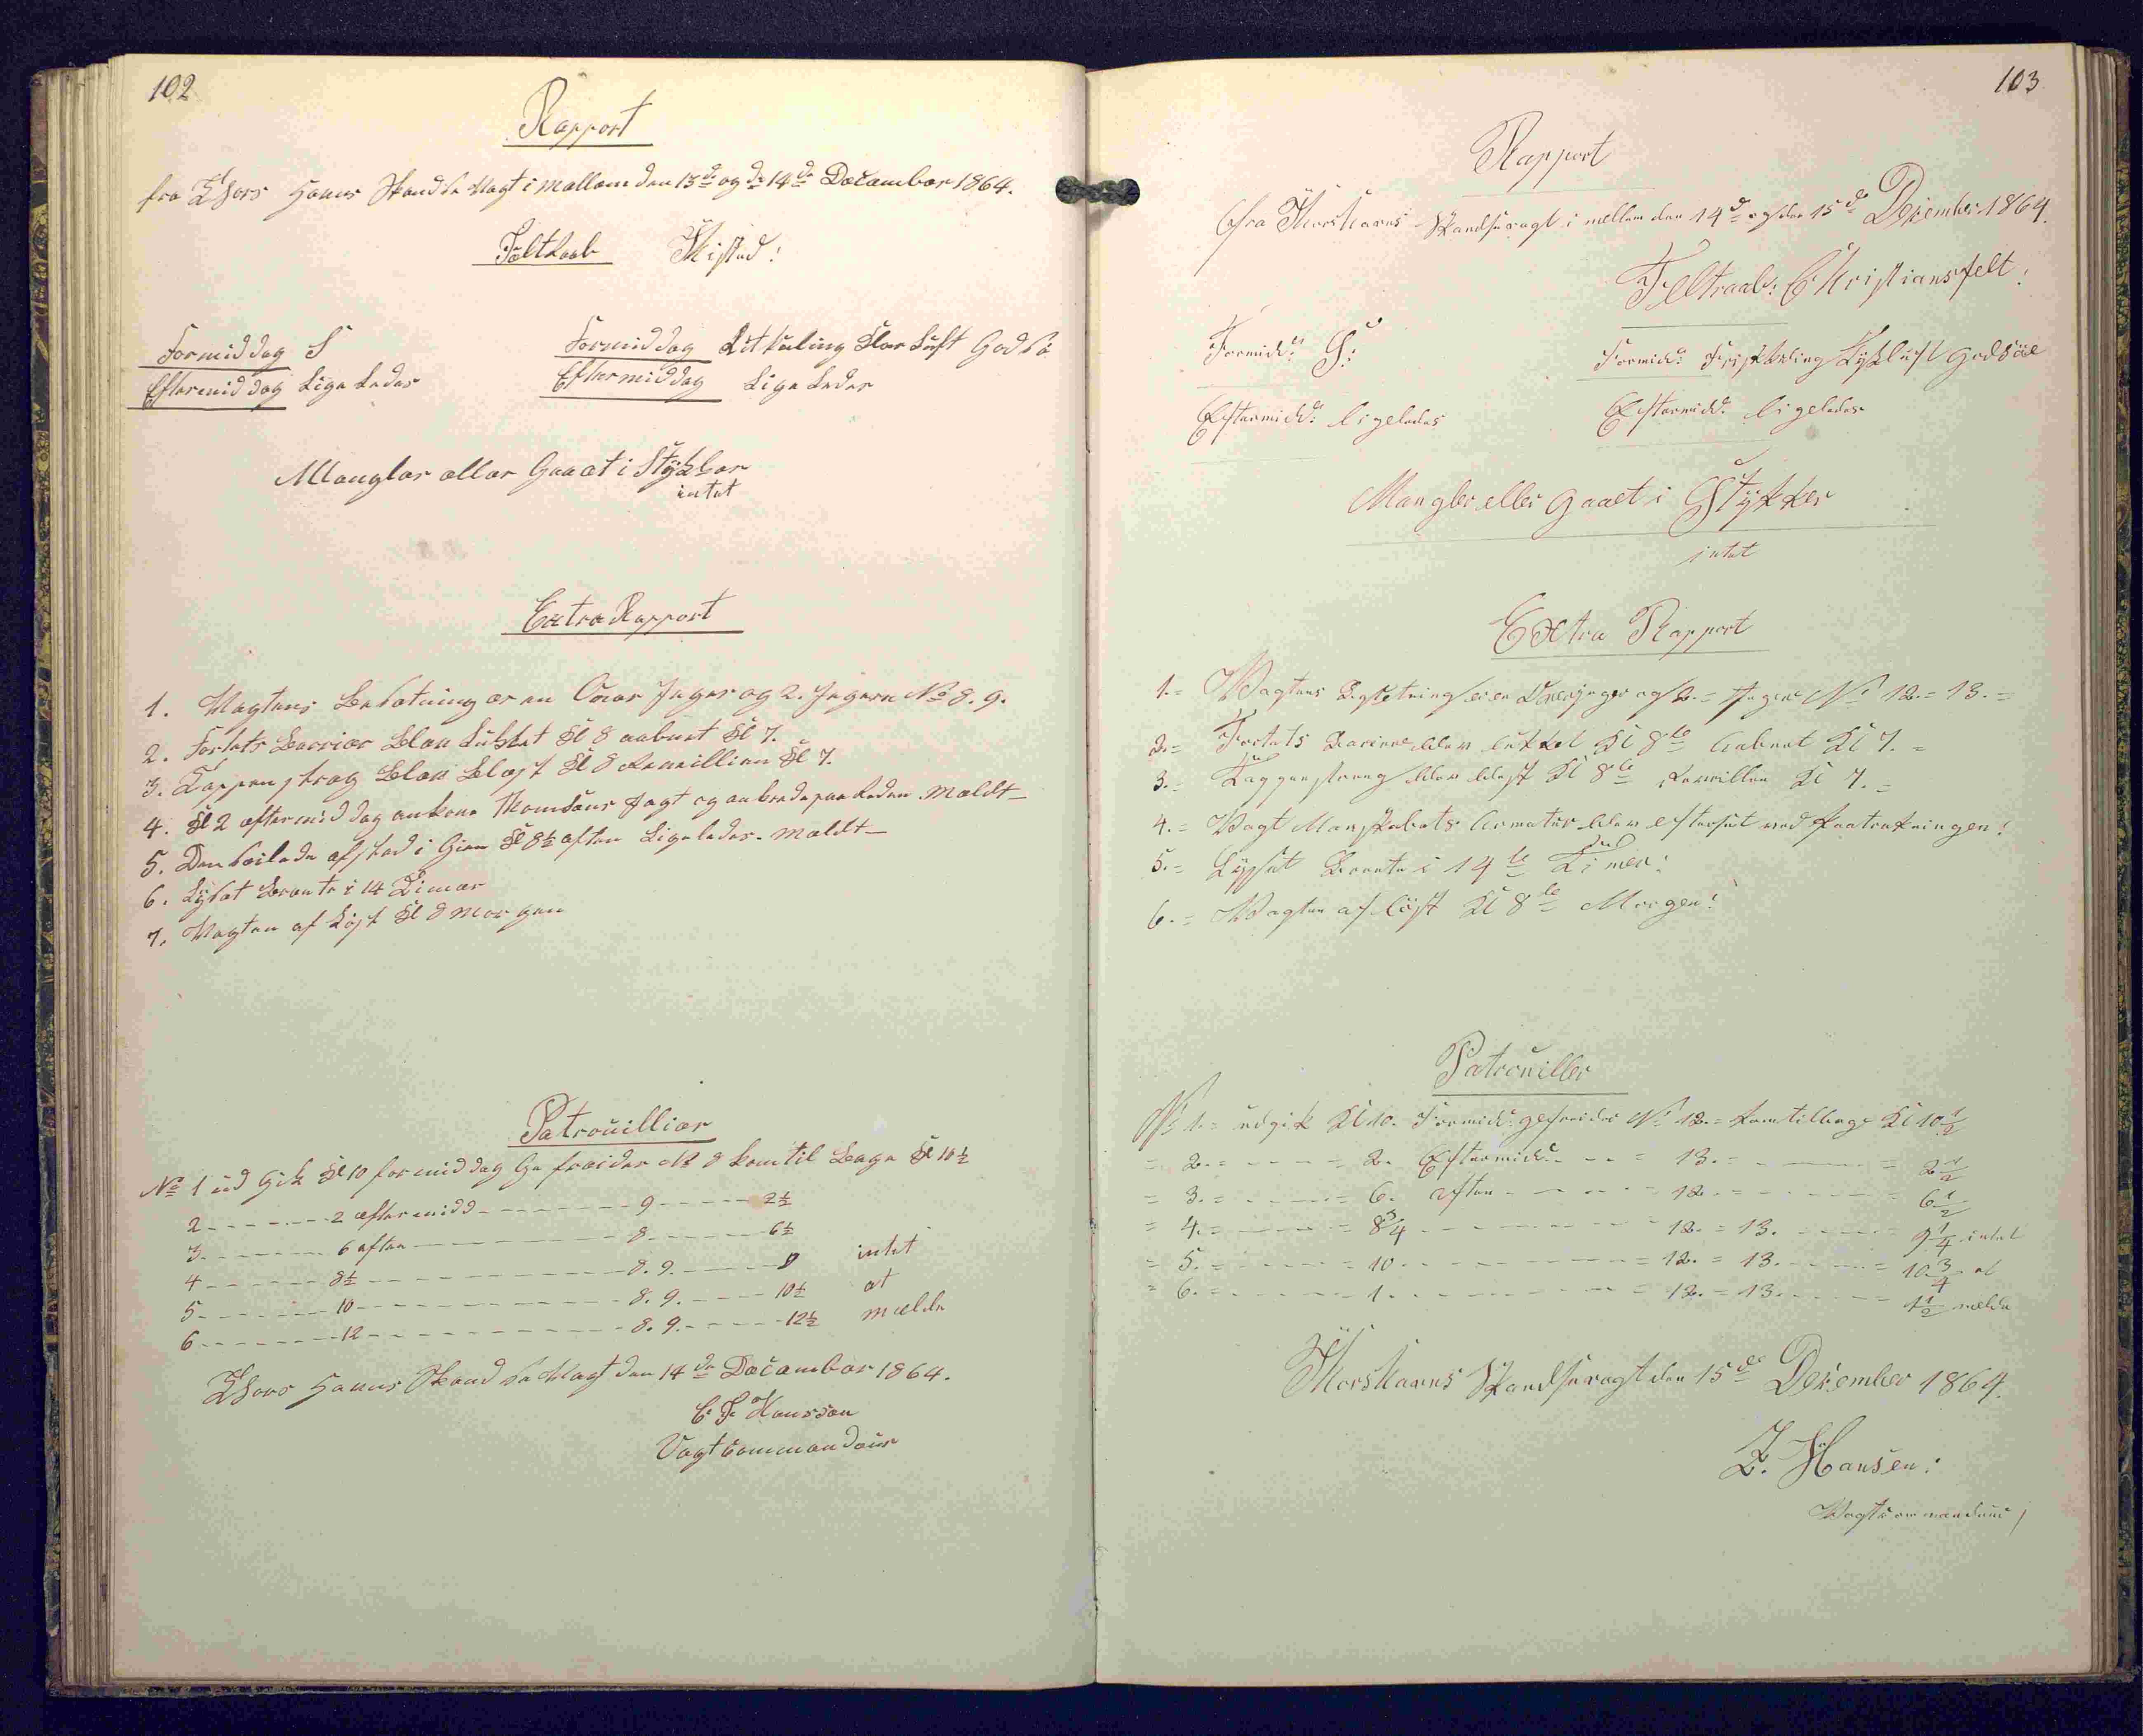 102
Rapport
fra Thors Havns Skandse Vagt i mællem den 13de og de 14de December 1864.
Feltraab Thisted!
Formiddag S
Eftermiddag Ligeledes
Formiddag Litkuling Klar Luft God Sø
Eftermiddag Ligeledes
Mangler eller Gaaet i Stykker
intet
Extra Rapport
1. Vagtens Besætning er en Over Jæger og 2. Jægere No 8. 9.
2. Fortets Barrier blev Lukket Kl 8 aabnet Kl 7.
3. Tappenstræg blev blæst Kl 8 Reveillien Kl 7.
4. Kl 2 eftermiddag ankom Jagt og ankrede paa Reden. Mældt
5. Den seilede afsted i Gien Kl 8½ aften Ligeledes. mældt
6. Lyset Brænte i 14 Timer
7. Vagten af Løst Kl 8 morgen
Patrouillier
No 1 ud Gik Kl 10 formiddag Gefreider No 8 kom til Bage Kl 10½
2 - - - 2 eftermidd - - - 9 - - - 2½
3 - - - 6 aften - - - 8 - - - 6½
4 - - - 8½ - - - 8. 9. - - - 9 intet
5 - - - 10 - - - 8. 9. - - - 10½ at
6 - - - 12 - - - 8. 9. - - - 12½ mælde
Thors Havns Skandse Vagt den 14de December 1864.
Hansen
Vagtcommandeur
103
Rapport
fra Thorshavns Skandsevagt i mellem den 14de og den 15de December 1864.
Feltraab: Christiansfelt!
Formidd: S:
Formidd: Frisk Kuling Tyk luft god Søe
Eftermidd: ligeledes
Eftermidd: ligeledes
Mangler eller gaaet i Stykker
intet
Extra Rapport
1.= Vagtens Besetning er en Overjæger og 2.= Jægere No 12.= 13.=
2.= Fortets Bariere blev lukket Kl 8te Aabnet Kl 7.=
3.= Tappenstræg blev blest Kl 8te Revillen Kl 7.=
4.= Vagt Manskabets Armatur blev efterset ved Paatrækningen!
5.= Lyset Brænte i 14te Timer!
6.= Vagten afløst Kl 8te Morgen!
Patrouiller
No 1.= udgik Kl 10. Formidd: gefreider No 12.= kom tilbage Kl 10½
= 2.= - - - = 2. Eftermidd: - - = 13.= - - - = 2½
= 3.= - - - = 6. aften - - - = 12.= - - - 6½
= 4.= - - - = 8¾ - - - 12.= 13. - - - = 9¼ intet
= 5.= - - - = 10 - - - = 12.= 13. - - - = 10¾ at
= 6.= - - - 1. - - - = 12.= 13. - - - = 1½ mælde
Thorshavns Skandsevagt den 15de December 1864.
Z. Hansen!
Vagtkommandeur